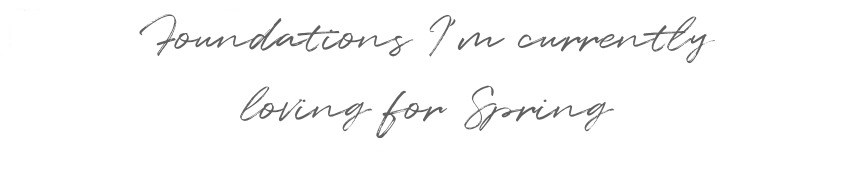 Foundations I'm currently
loving for Spring